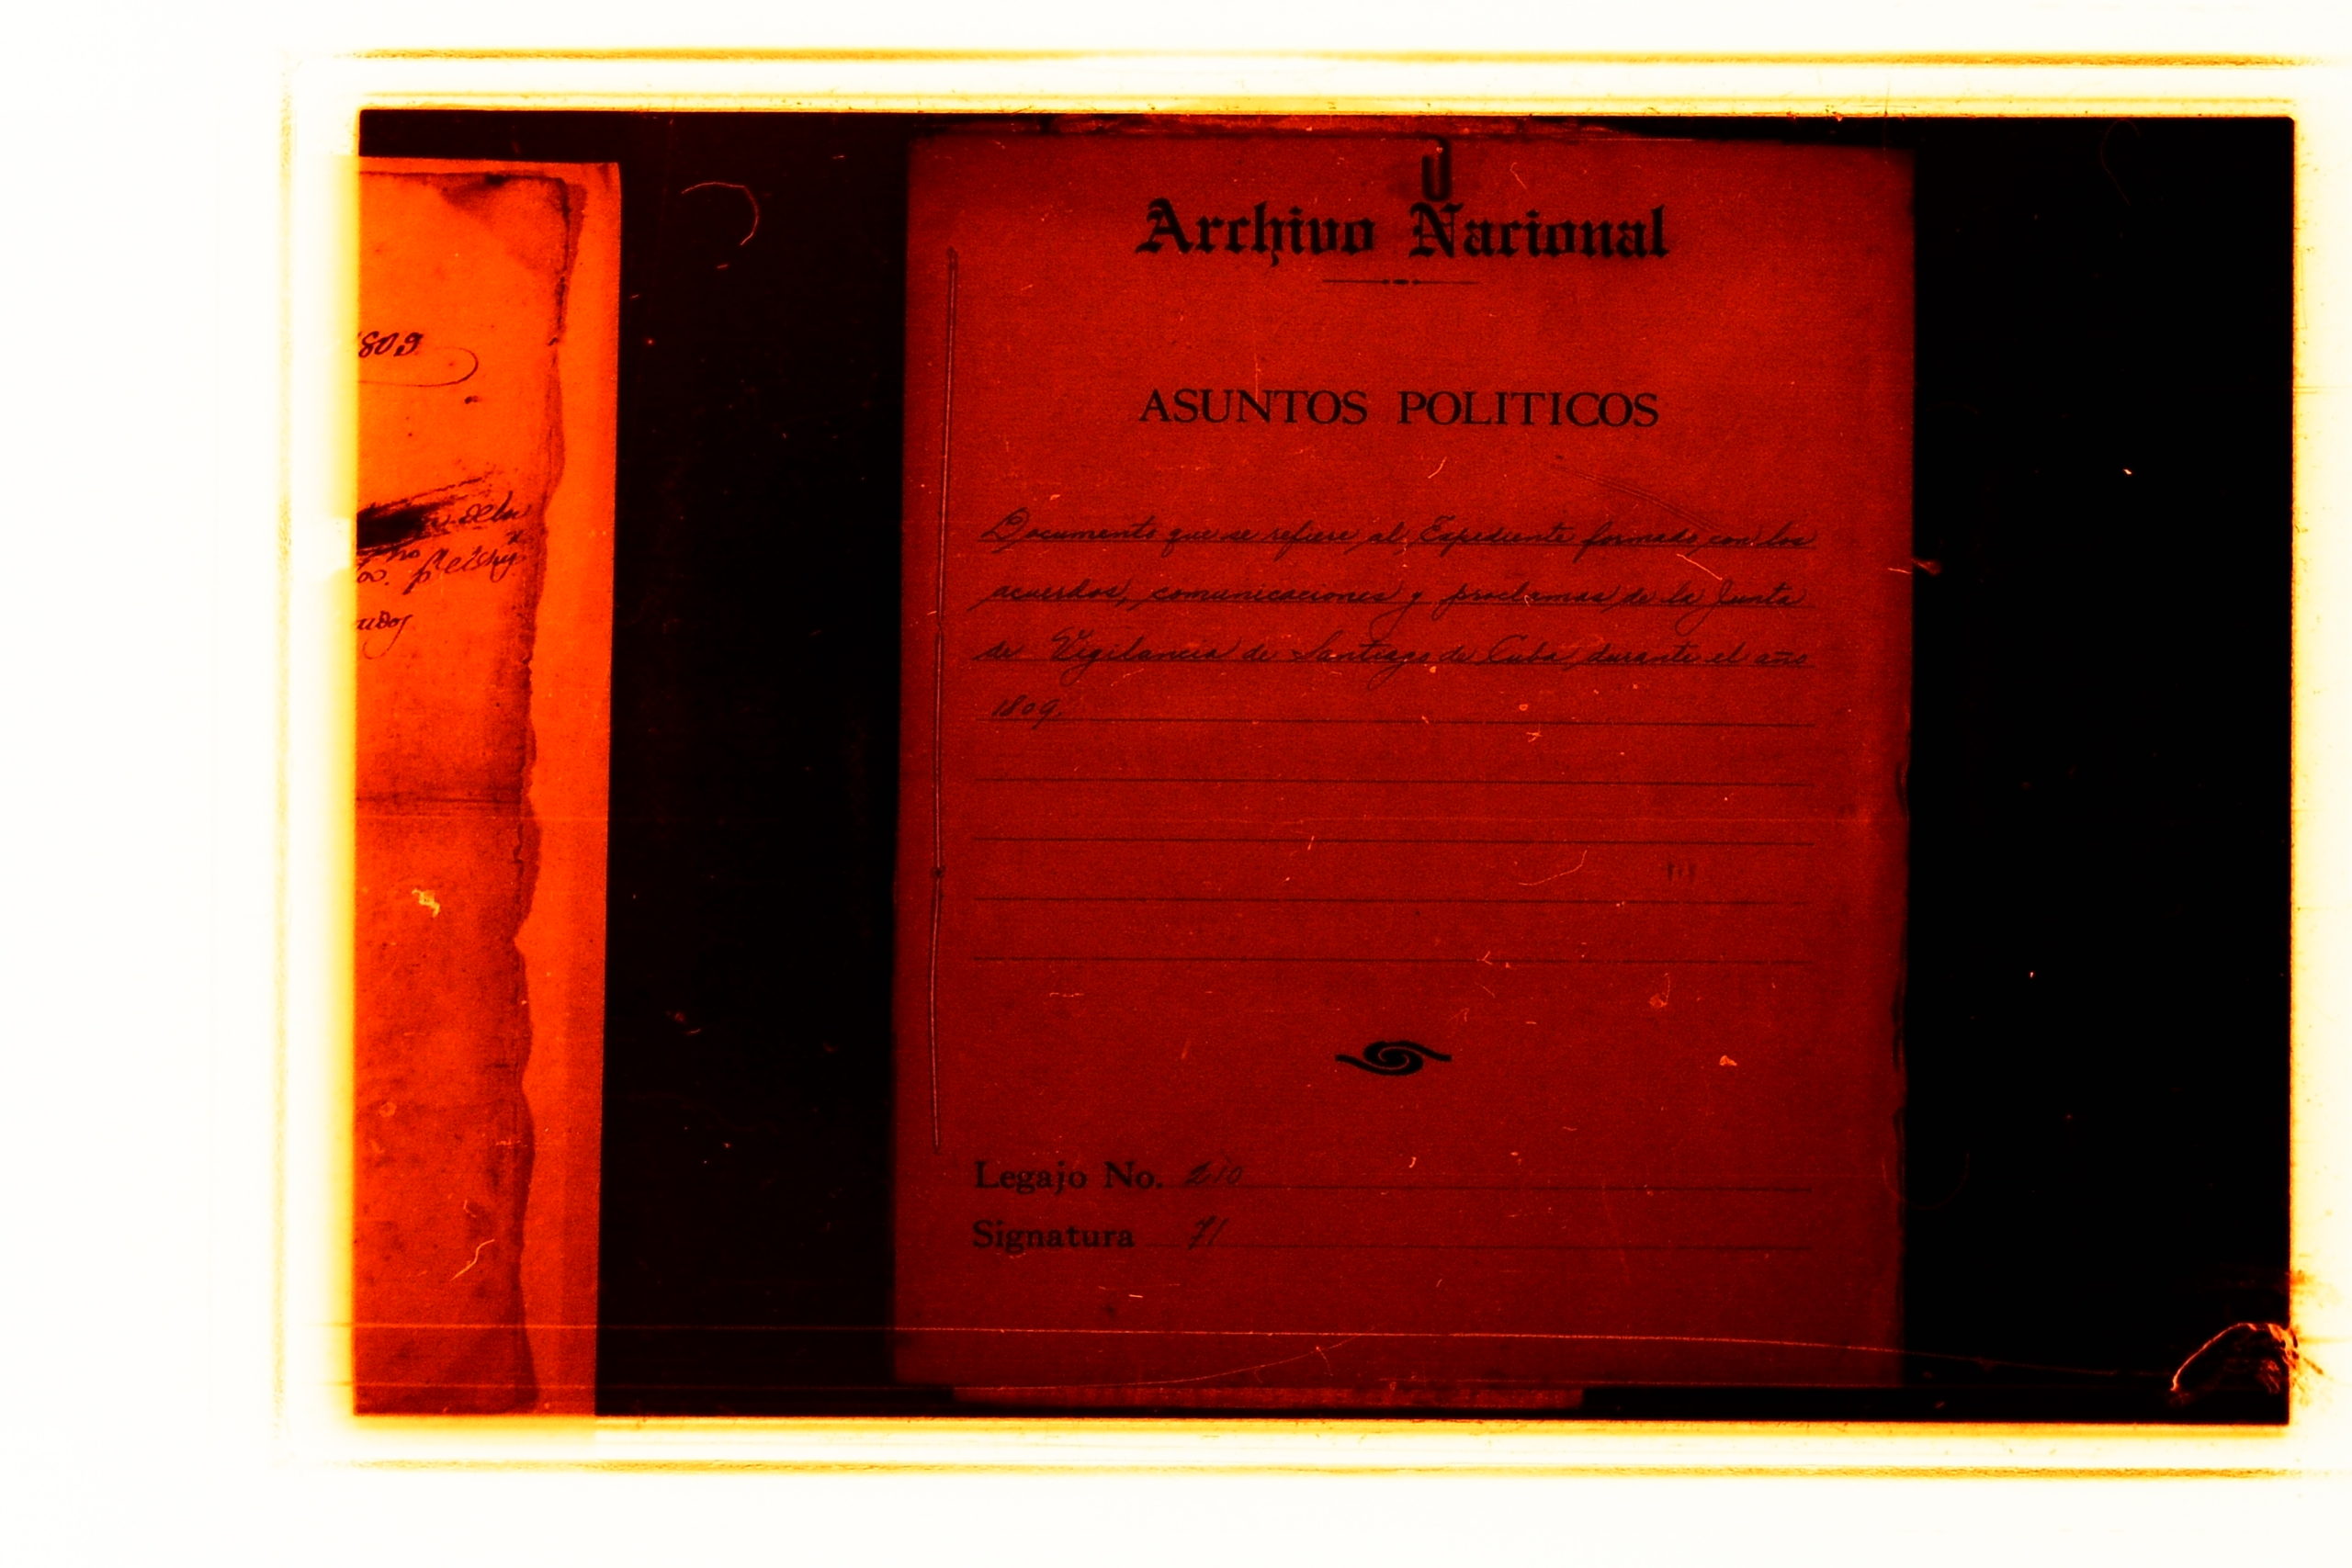 1809
dela
Archivo Nacional
ASUNTOS POLITICOS
Documento que se refiere al Expediente formado con los
acuerdos, comunicaciones y proclamas de la Junta
de Vigilancia de Santiago de Cuba, durante el año
1809
Legajo No. 210
Signatura 71